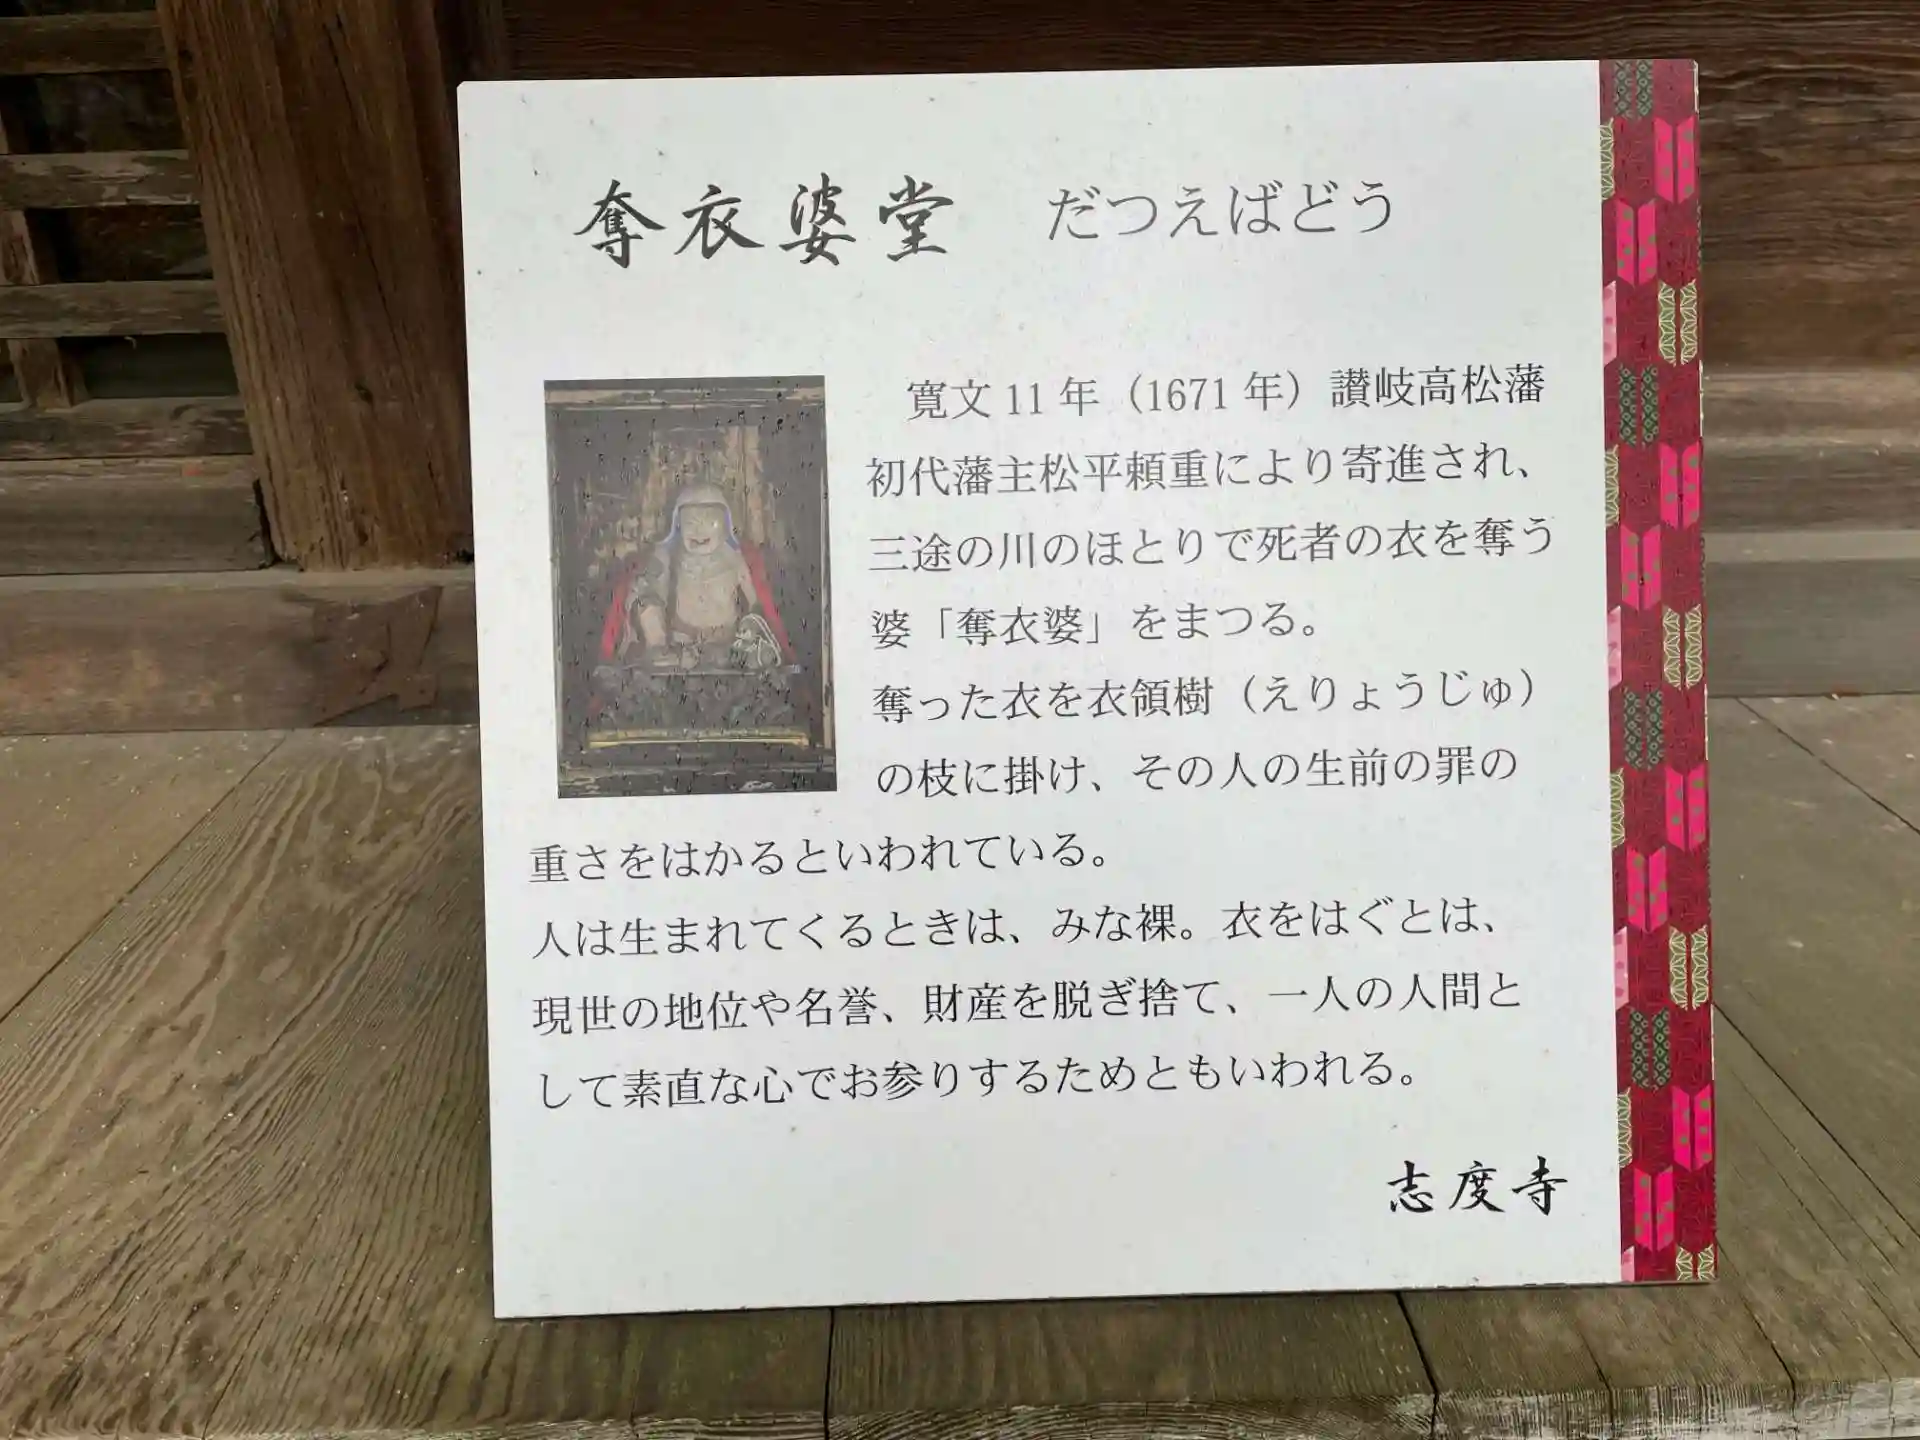 奪衣婆堂 だつえばどう
寛文11年（1671年）讃岐高松藩
初代藩主松平頼重により寄進され、
三途の川のほとりで死者の衣を奪う
婆「奪衣婆」をまつる。
奪った衣を衣領樹（えりょうじゅ）
の枝に掛け、その人の生前の罪の
重さをはかるといわれている。
人は生まれてくるときは、みな裸。衣をはぐとは、
現世の地位や名誉、財産を脱ぎ捨て、一人の人間と
して素直な心でお参りするためともいわれる。
志度寺